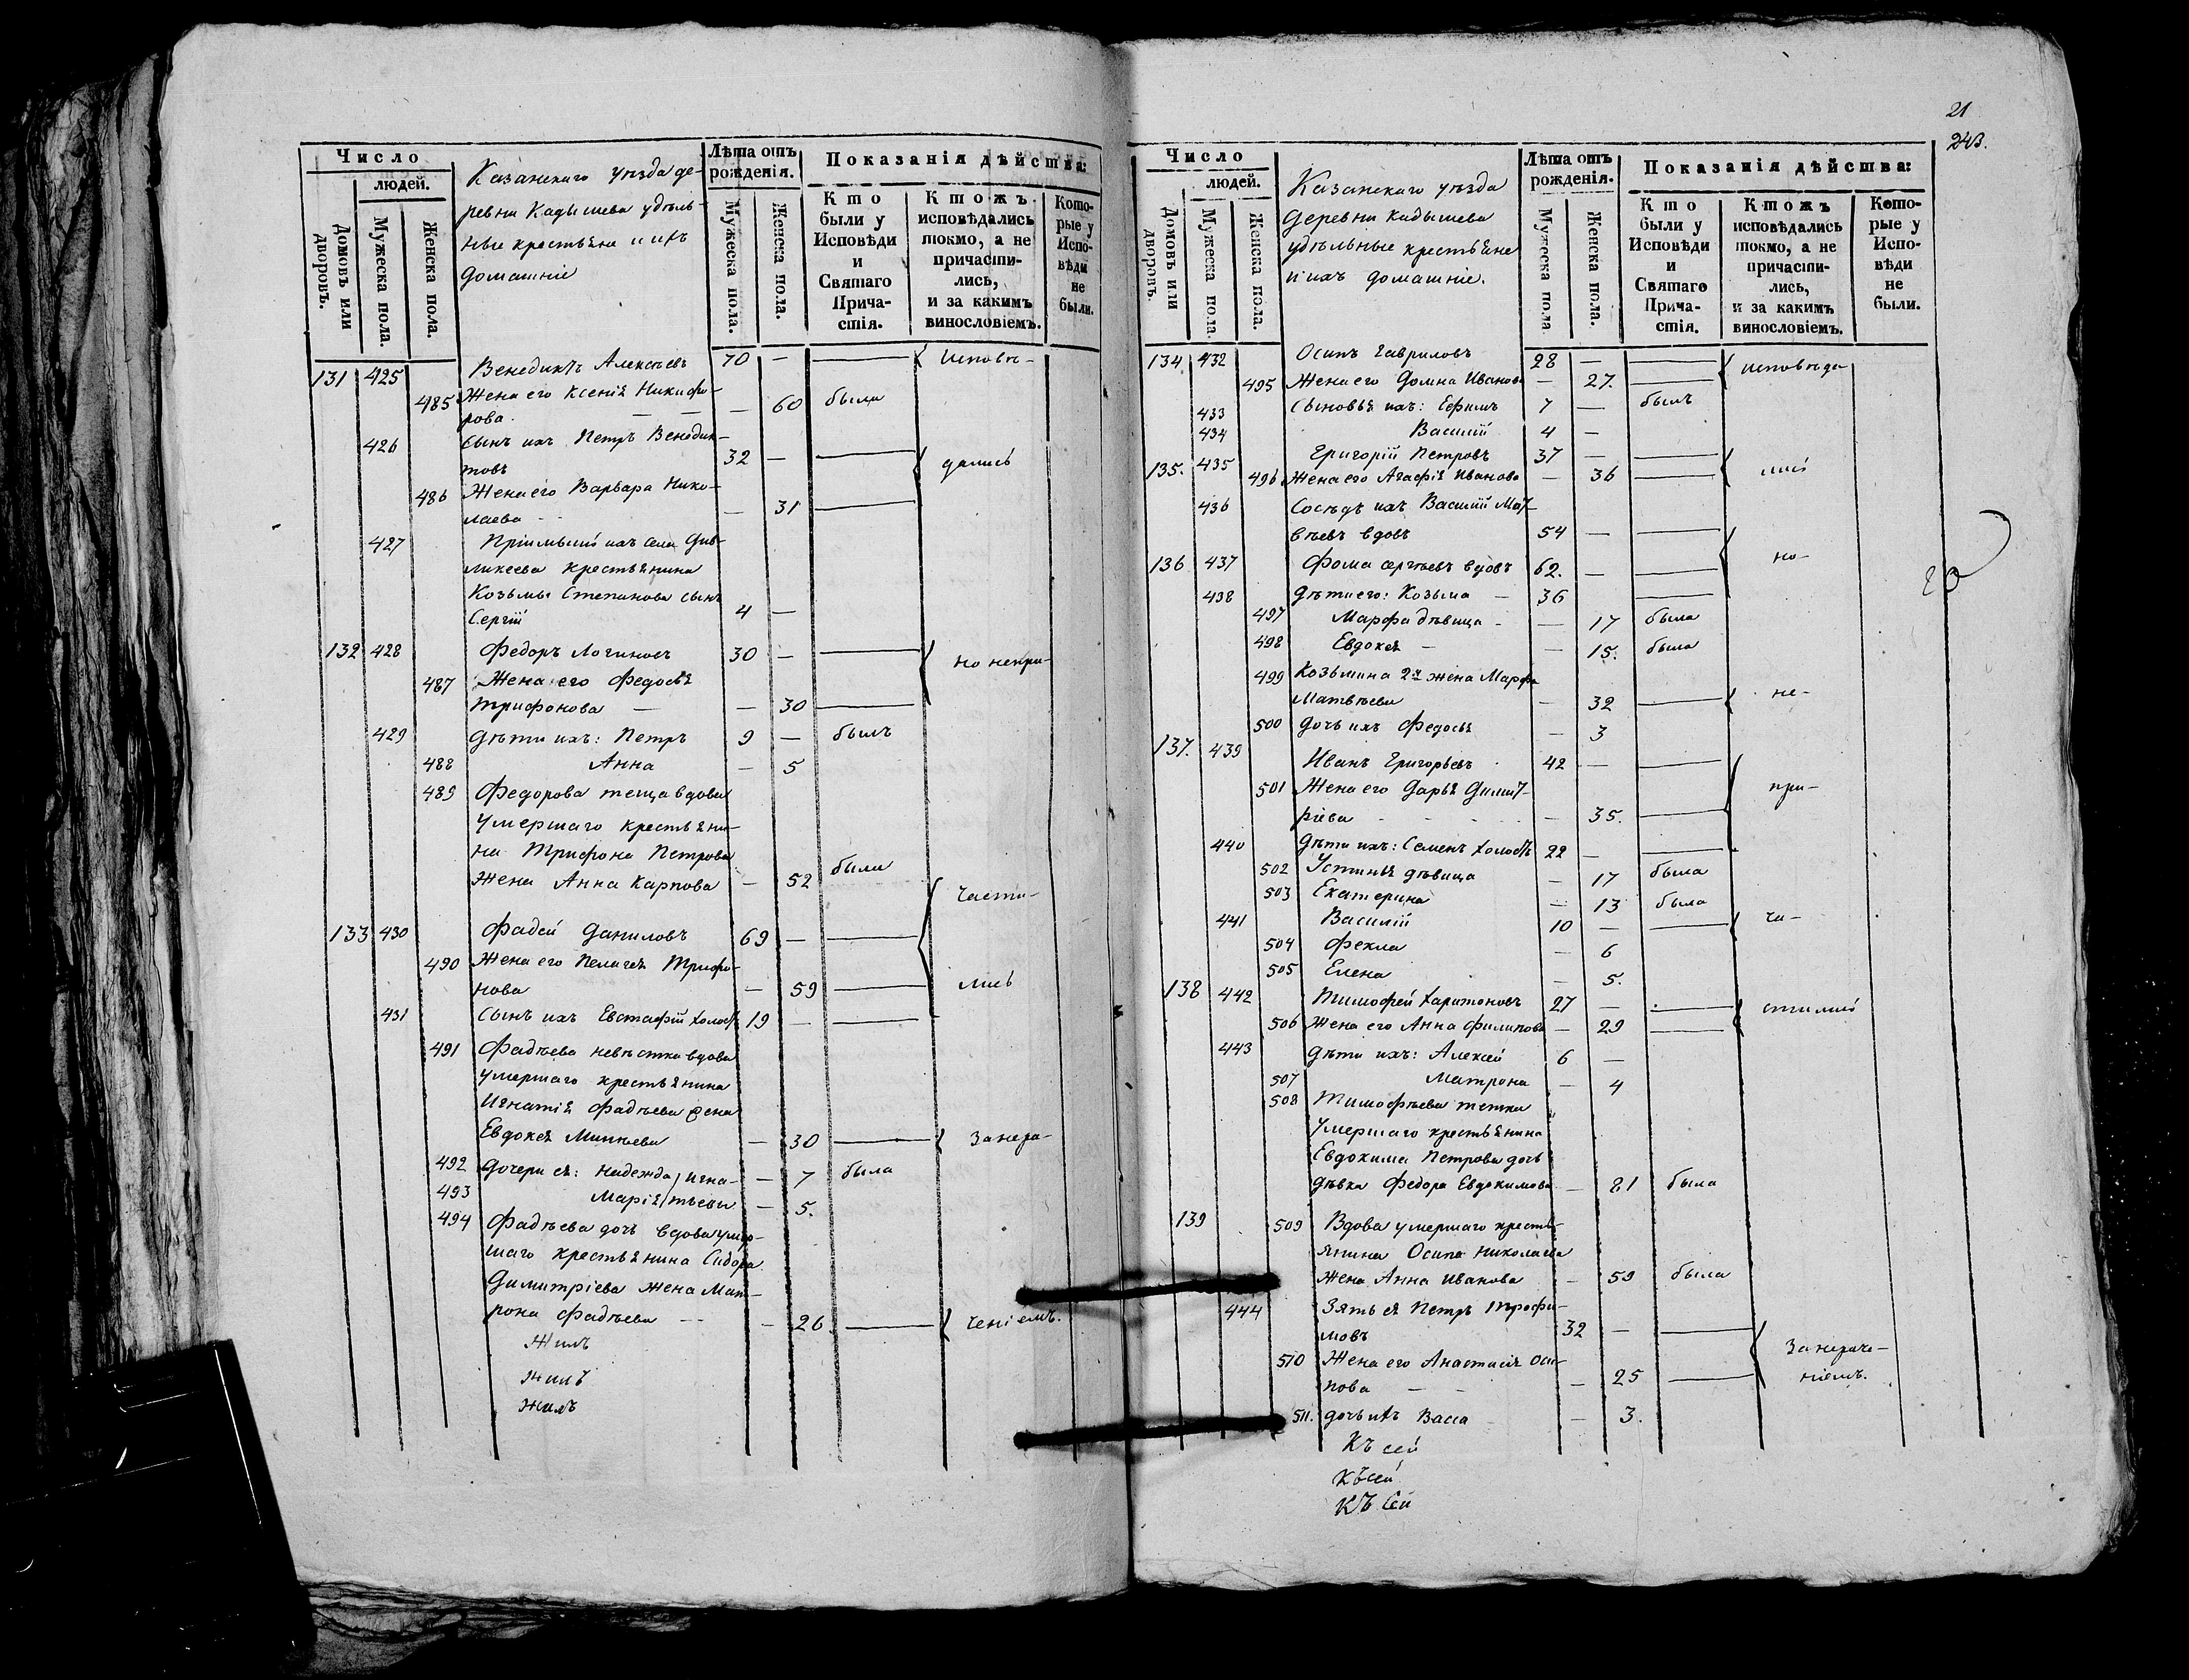 Число
людей.
Домовъ или дворовъ.
Мужеска пола.
Женска пола.
Казанскаго уѣзда де-
ревни Кадышева удѣль-
ные крестьяна и ихъ
домашніе
Лѣта отъ рожденія.
Мужеска пола.
Женска пола.
Показанія дѣйства:
Кто были у Исповѣди и Святаго Прича-стія.
Ктожъ исповѣдались токмо, а не причасти-лись, и за какимъ винословіемъ.
Кото-рые у Испо-вѣди не были.
131 425 Венедиктъ Алексѣевъ 70 — — исповѣ-
485 Жена его Ксенія Никифо-
рова — — — 60 была
426 сынъ ихъ Петръ Венедик-
товъ 32 — — дались
486 Жена его Варвара Нико-
лаева — 31 —
427 Пріимышъ ихъ села
крестьянина
Козьмы Степанова сынъ
Сергій 4 —
132 428 Федоръ Логиновъ 30 — — но непри-
487 Жена его Федосья
Трифонова — — 30 —
429 дѣти ихъ: Петръ 9 — былъ
488 Анна — 5
489 Федорова теща вдова
умершаго крестьяни-
на Трифона Петрова
жена Анна Карпова — 52 была
части-
133 430 Фадей Даниловъ 69 — —
490 Жена его Пелагея Трифо-
нова — 59 — лись
431 сынъ ихъ Евстафій холостъ 19 — —
491 Фадѣева невѣстка вдова
умершаго крестьянина
Игнатія Фадѣева жена
Евдокея — 30 — за нера-
492 Дочери ея: Надежда Игна- — 7 была
493 Марія тьевы — 5.
494 Фадѣева дочь вдова умер-
шаго крестьянина Сидора
Димитріева жена Мат-
рона Фадѣева — — 26 — ченіемъ.
Жилъ
Жилъ
Жилъ
21
243.
Число
людей.
Домовъ или дворовъ.
Мужеска пола
Женска пола.
Казанскаго уѣзда
деревни Кадышева
удѣльные крестьяне
и ихъ домашніе.
Лѣта отъ рожденія.
Мужеска пола
Женска пола.
Показанія дѣйства:
Кто были у Исповѣди и Святаго Прича-стія.
Ктожъ исповѣдались токмо, а не причасти-лись, и за какимъ винословіемъ.
Кото-рые у Испо-вѣди не были.
134 432 Осипъ Гавриловъ 28 — — исповѣда
495 Жена его Домна Иванова — 27. —
433 сыновья ихъ: Ефимъ 7 — былъ
434 Василій 4 —
135. 435 Григорій Петровъ 37 — —
496 Жена его Агафія Иванова — 36 — лись
436 Сосѣдъ ихъ Василій Мат-
вѣевъ вдовъ 54 — —
136 437 Фома Сергѣевъ вдовъ 62. — — но-
438 дѣти его: Козьма — 36 —
497 Марфа дѣвица — — 17 была
498 Евдокея — — 15. была
499 Козьмина 2я жена Марфа
Матвѣева — 32 — не-
500 дочь ихъ Федосья — 3
137. 439 Иванъ Григорьевъ 42 — —
501 Жена его Дарья Димит-
ріева — 35. — при-
440 дѣти ихъ: Семенъ холостъ 22 — —
502 Устинья дѣвица — 17 была
503 Екатерина — 13 была
441 Василій 10 — — ча-
504 Фекла — 6
505 Елена — 5.
138 442 Тимофей Харитоновъ 27 — — стились
506 Жена его Анна Филипова — 29 —
443 дѣти ихъ: Алексѣй 6 —
507 Матрона — 4
508 Тимофѣева тетка
умершаго крестьянина
Евдокима Петрова дочь
дѣвка Федора Евдокимова — 81 была
139 509 Вдова умершаго кресть-
янина Осипа Николаева
жена Анна Иванова — 59 была
444 Зять ея Петръ Трофи-
мовъ 32 — —
510 Жена его Анастасія Оси-
пова — — — 25 —
за нераче-
ніемъ.
511. дочь ихъ Васса — 3.
Къ сей
Къ сей
Къ сей